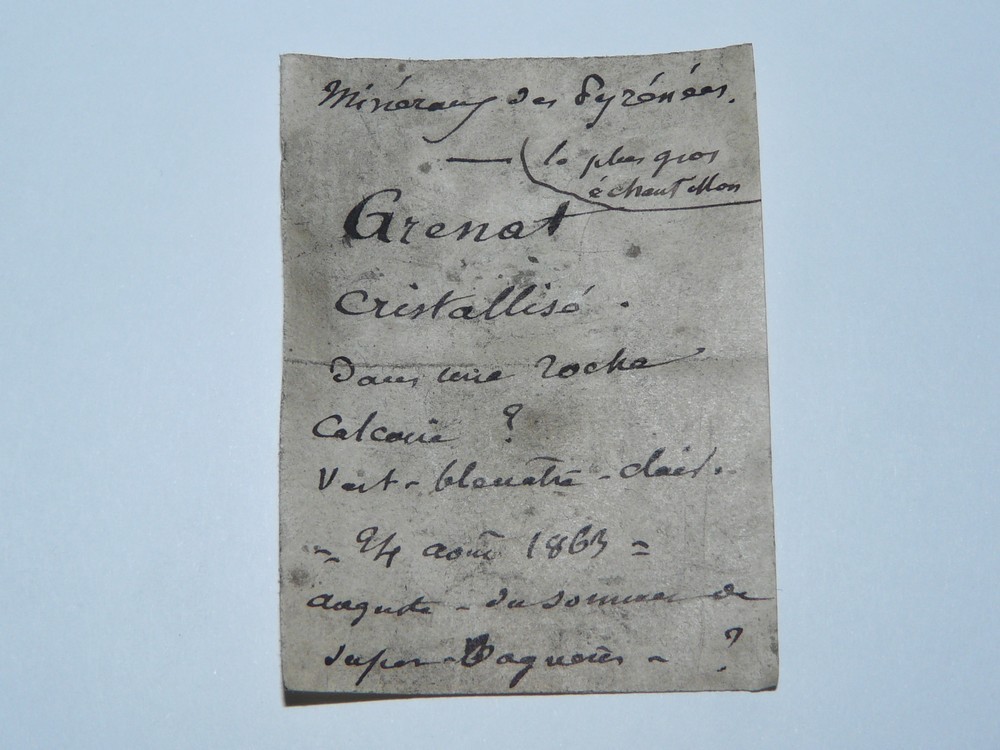 Minéraux des Pyrénées.
— le plus gros
échantillon
Grenat
Cristallisé.
Dans une roche
Calcaire ?
Vert-bleuatre-clair.
= 24 août 1863 =
Auguste - du sommet de
Super-Bagnères - ?